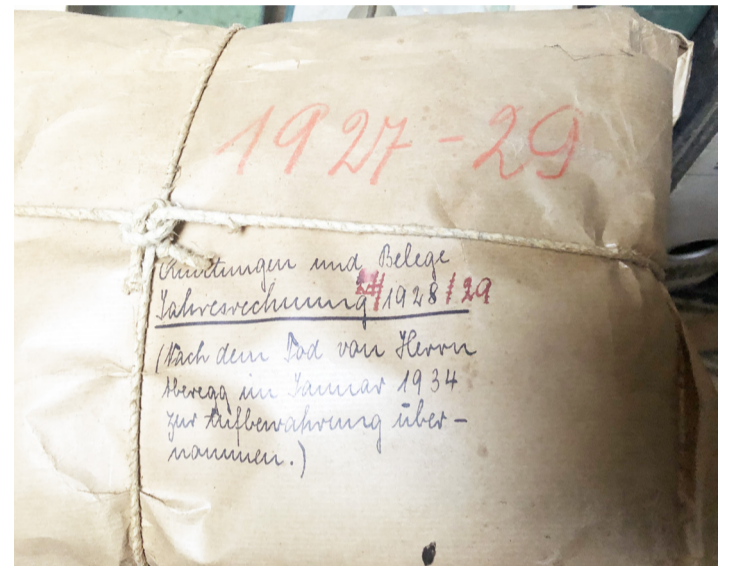 1927-29
Quittungen und Belege
Jahresrechnung 27/1928/29
(Nach dem Tod von Herrn
Aberegg im Januar 1934
zur Aufbewahrung über-
nommen.)